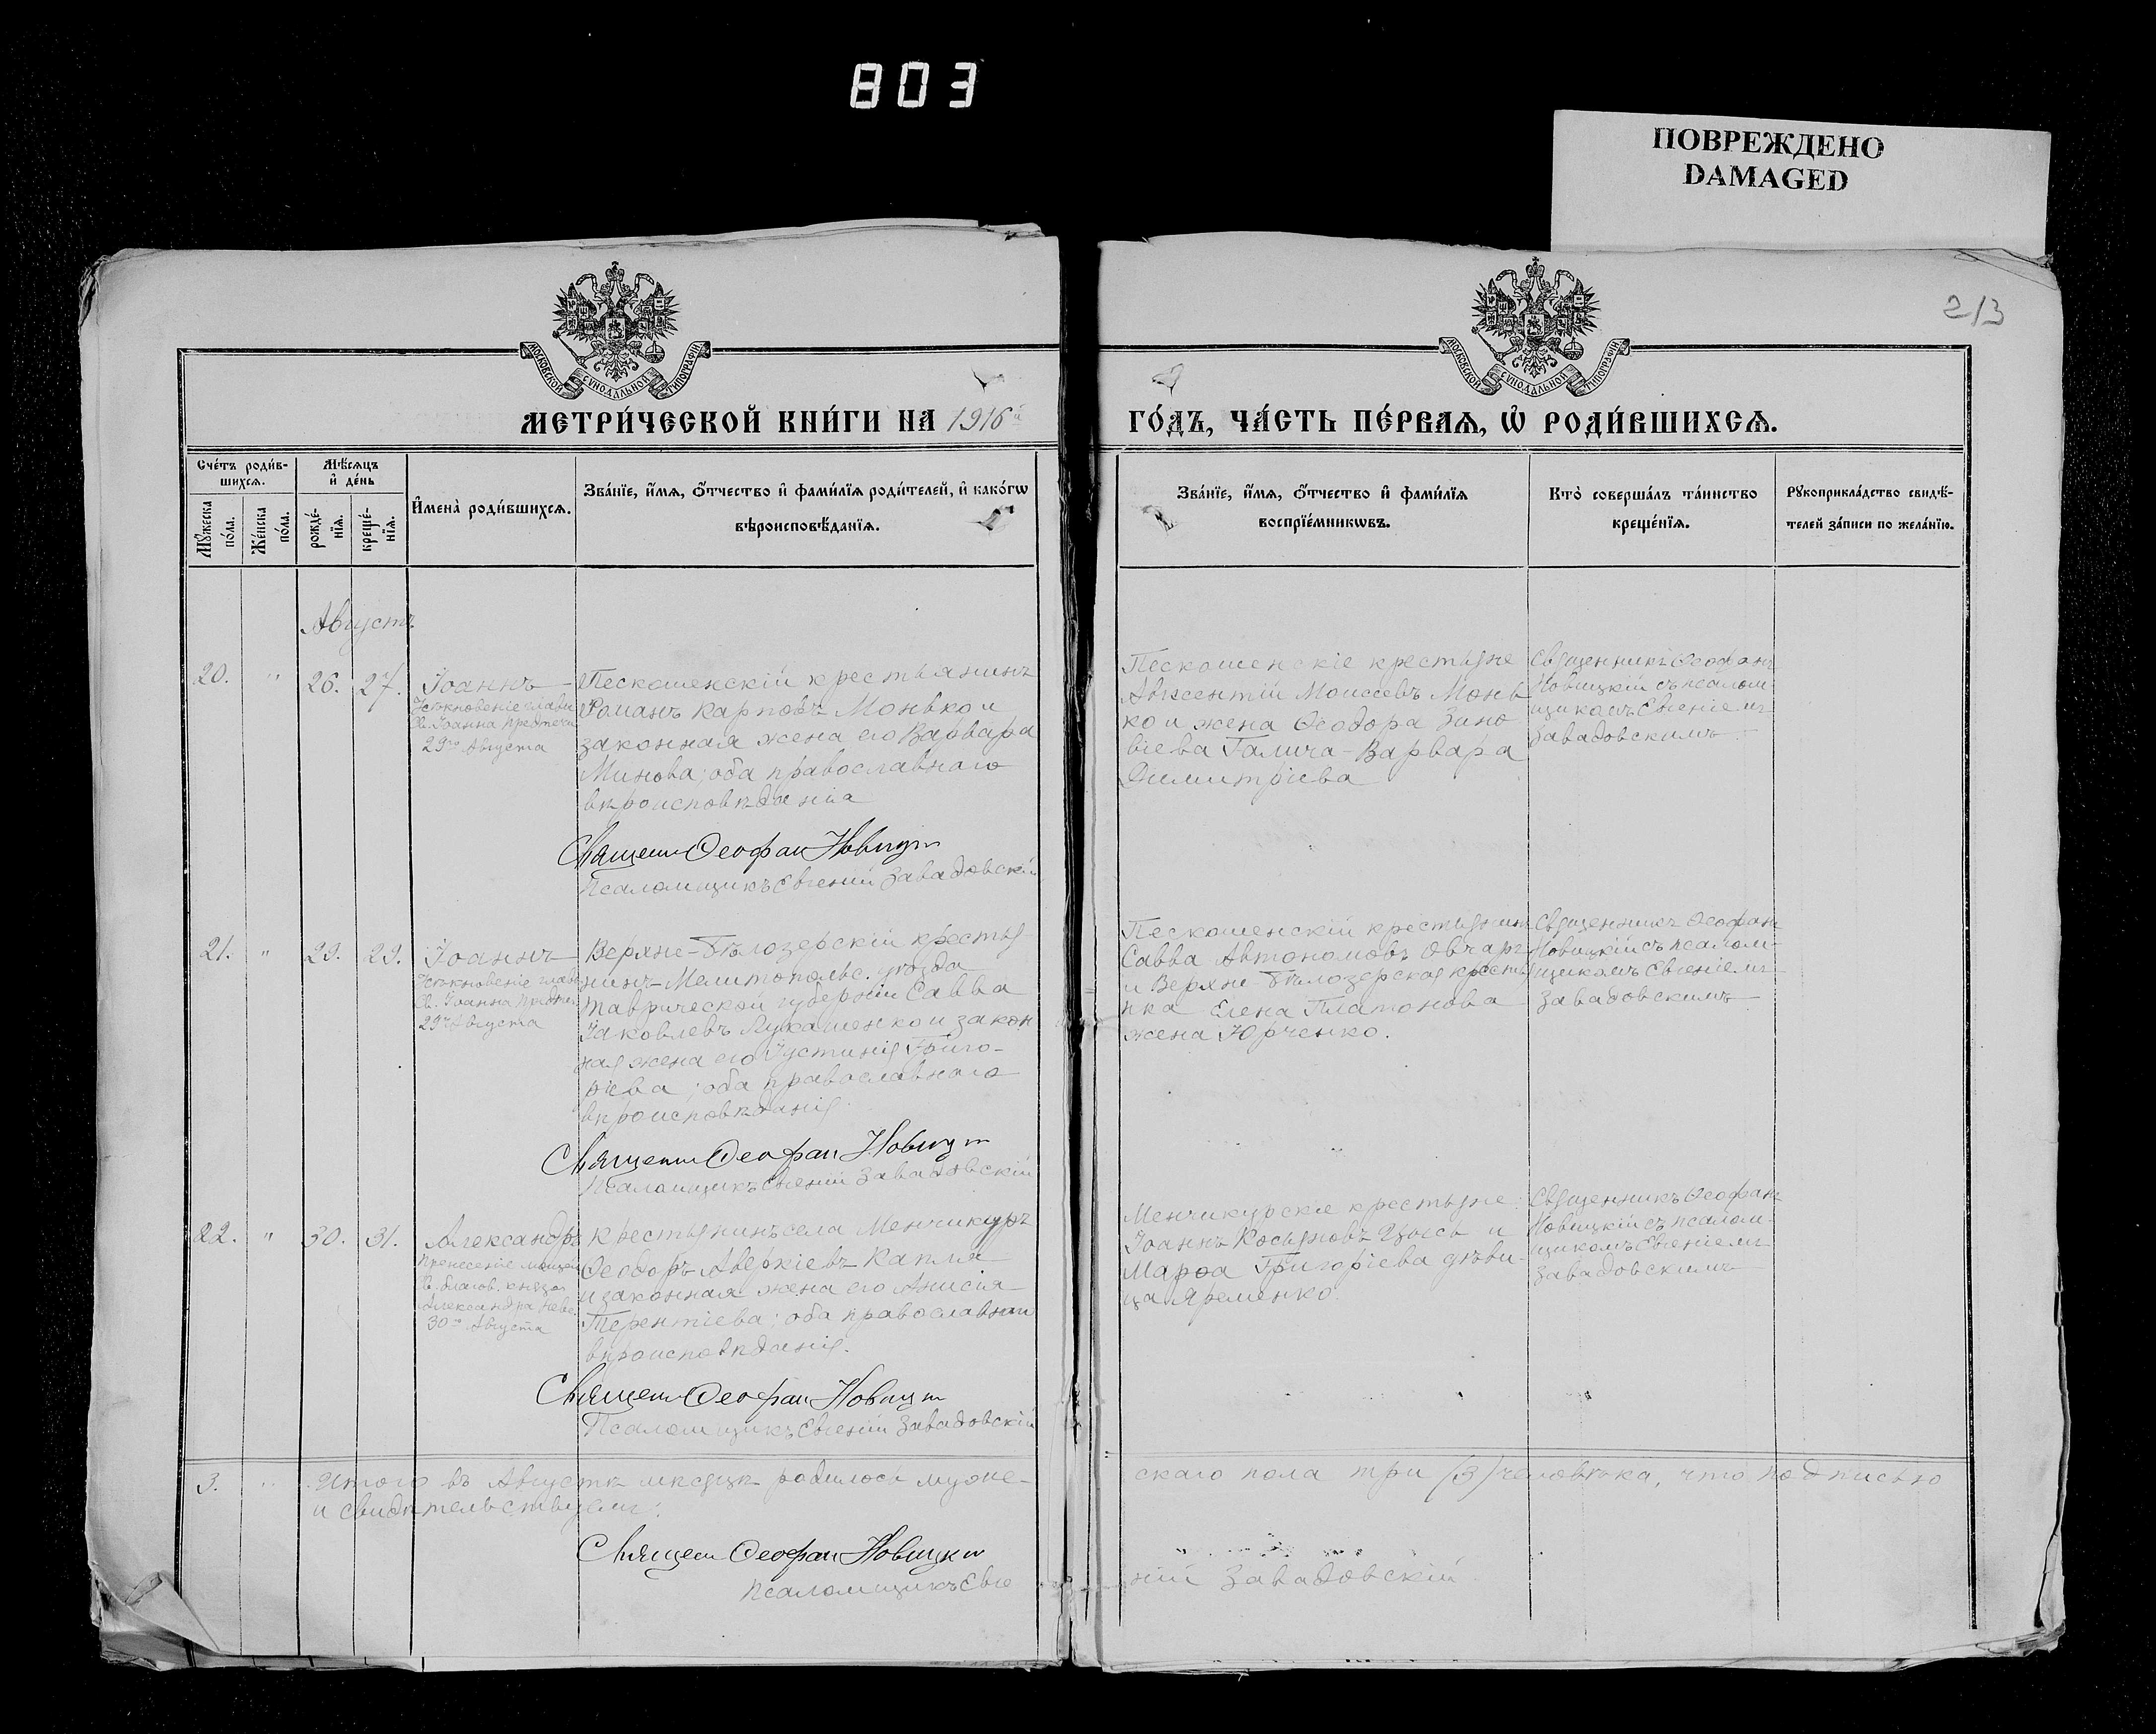 803
ПОВРЕЖДЕНО
DAMAGED
213
МОСКОВСКОЙ СѴНОДАЛЬНОЙ ТИПОГРАФІИ
МОСКОВСКОЙ СѴНОДАЛЬНОЙ ТИПОГРАФІИ
МЕТРИ́ЧЕСКОЙ КНИ́ГИ НА 1916й
ГО́ДЪ, ЧА́СТЬ ПЕ́РВАѦ, Ѡ҆ РОДИ́ВШИХСѦ.
Сче́тъ роди́в-
шихсѧ.
Мѣ́сѧцъ
и҆ де́нь
Мꙋ́жеска
по́ла.
Же́нска
по́ла.
рожде́-
нїѧ.
креще́-
нїѧ.
И҆мена̀ роди́вшихсѧ.
Зва́нїе, и҆́мѧ, ѻ҆́тчество и҆ фами́лїѧ роди́телей, и҆ како́гѡ
вѣроисповѣ́данїѧ.
Зва́нїе, и҆́мѧ, ѻ҆́тчество и҆ фами́лїѧ
воспрїе́мникѡвъ.
Кто̀ соверша́лъ та́инство
креще́нїѧ.
Рꙋкоприкла́дство свидѣ́-
телей за́писи по жела́нїю.
Августъ
20. " 26. 27. Іоаннъ
Усѣкновеніе главы
Св. Іоанна Предтечи
29го Августа
Пескошенскій крестьянинъ
Романъ Карповъ Монько и
законная жена его Варвара
Минова; оба православнаго
вѣроисповѣданія
Священ Ѳеофан Новицкій
Псаломщикъ Евгеній Завадовскій
Пескошенскіе крестьяне
Авксентій Моисеевъ Монь
ко и жена Ѳеодора Зино
віева Галича - Варвара
Димитріева
Священникъ Ѳеофанъ
Новицкій съ псалом-
щикомъ Евгеніемъ
Завадовскимъ
21. " 29. 29. Іоаннъ
Усѣкновеніе главы
Св. Іоанна Предтеч
29го Августа
Верхне-Бѣлозерскій крестья
нинъ Мелитопольс. уѣзда
Таврической губерніи Савва
Іаковлевъ Лукашенко и закон
ная жена его Іустинія Григо-
рьева; оба православнаго
вѣроисповѣданія.
Священ Ѳеофан Новицкій
Псаломщикъ Евгеній Завадовскій
Пескошенскій крестьянинъ
Савва Автономовъ Овчар
и Верхне-Бѣлозерская кресть
нка Елена Платонова
жена Юрченко.
Священникъ Ѳеофан
Новицкій съ псалом-
щикомъ Евгеніемъ
Завадовскимъ
22. " 30. 31. Александръ
Пренесеніе мощей
Св. благов. князя
Александра Невс.
30го Августа
Крестьянинъ села Менчикуръ
Ѳеодоръ Аверкіевъ Капля
и законная жена его Анисія
Терентіева; оба православнаго
вѣроисповѣданія.
Священ Ѳеофан Новицкій
Псаломщикъ Евгеній Завадовскій
Менчикурскіе крестьяне:
Іоаннъ Косьяновъ и
Марѳа Григоріева дѣви-
ца Яременко.
Священникъ Ѳеофан
Новицкій съ псалом-
щикомъ Евгеніемъ
Завадовскимъ
3. " Итого въ Августѣ мѣсяцѣ родилось муже-
скаго пола три (3) человѣка, что подписью
и свидѣтельствуемъ:
Священ Ѳеофан Новицкій
Псаломщикъ Евге
ній Завадовскій.